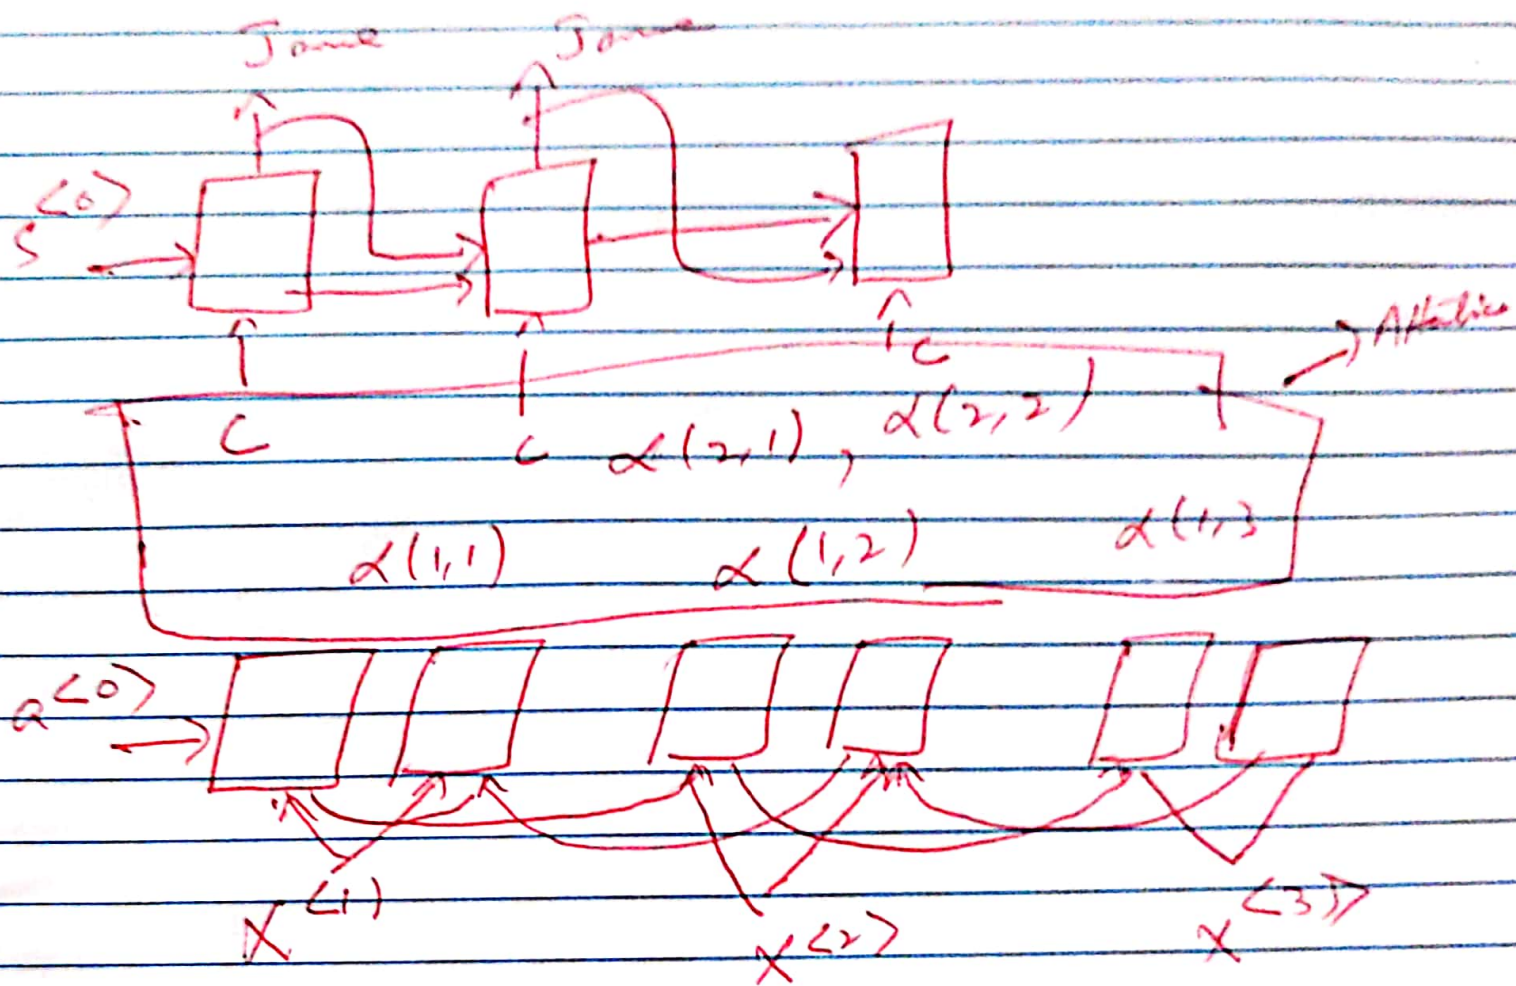 Jane Jane
S<0>
C
C C α(2,1), α(2,2)
α(1,1) α(1,2) α(1,3
a<0>
X<1> X<2> X<3>